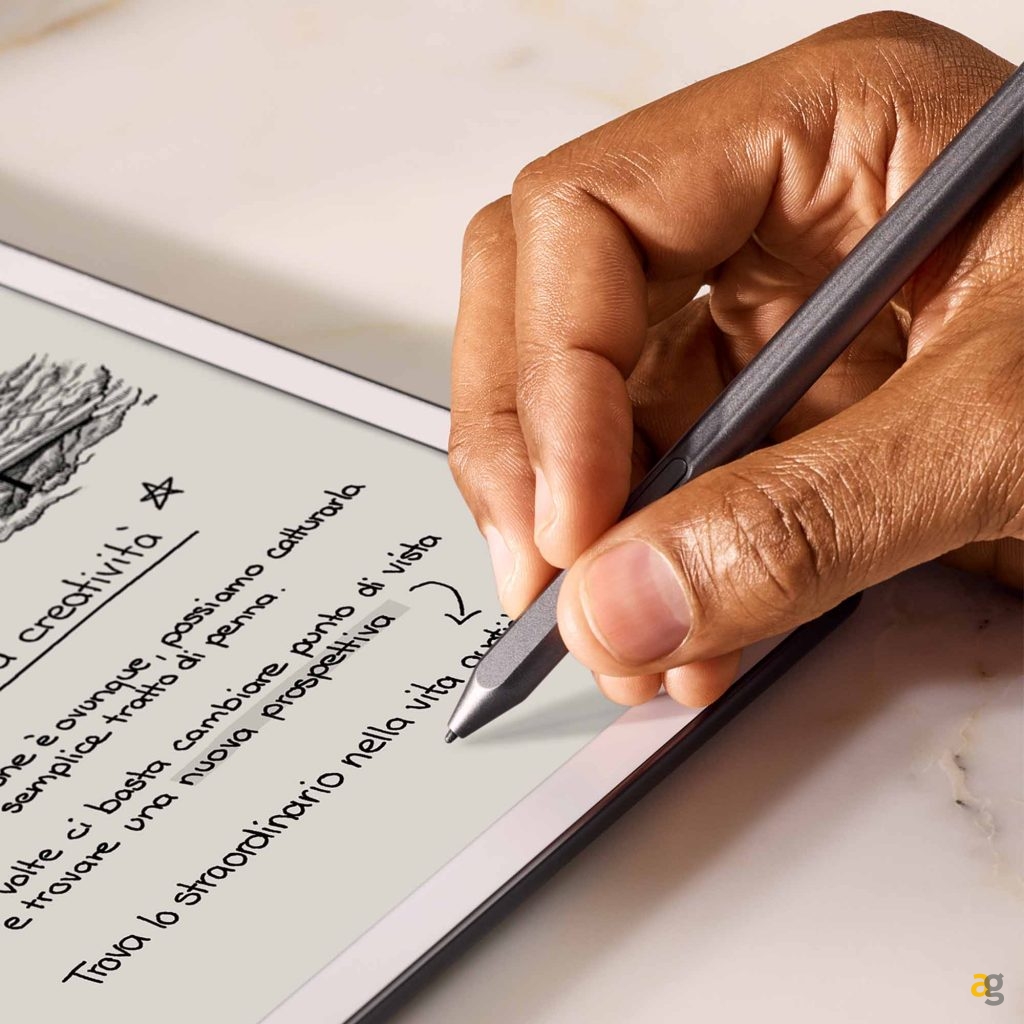 creatività
è ovunque, possiamo catturarla
semplice tratto di penna.
volte ci basta cambiare punto di vista
e trovare una nuova prospettiva
Trova lo straordinario nella vita
ag